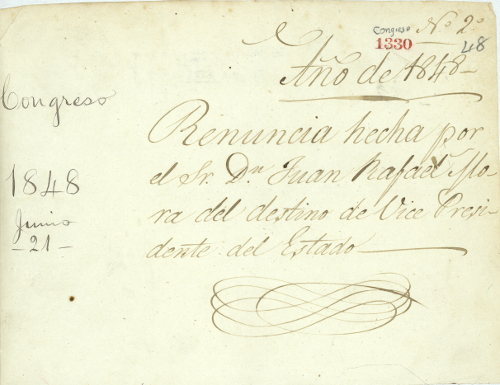 Congreso Nº 2º
1330 48
Año de 1848-
Congreso
1848
Junio
-21-
Renuncia hecha por
el Sr. Dn Juan Rafael Mo-
ra del destino de Vice Presi-
dente del Estado